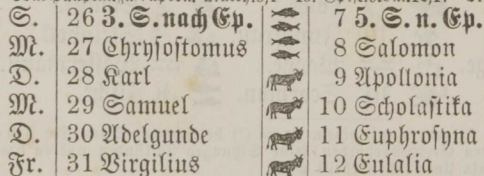 S. 26 3. S. nach Ep. 7 5. S. n. Ep.
M. 27 Chrysostomus 8 Salomon
D. 28 Karl 9 Apollonia
M. 29 Samuel 10 Scholastika
D. 30 Adelgunde 11 Euphrosyna
Fr. 31 Virgilius 12 Eulalia